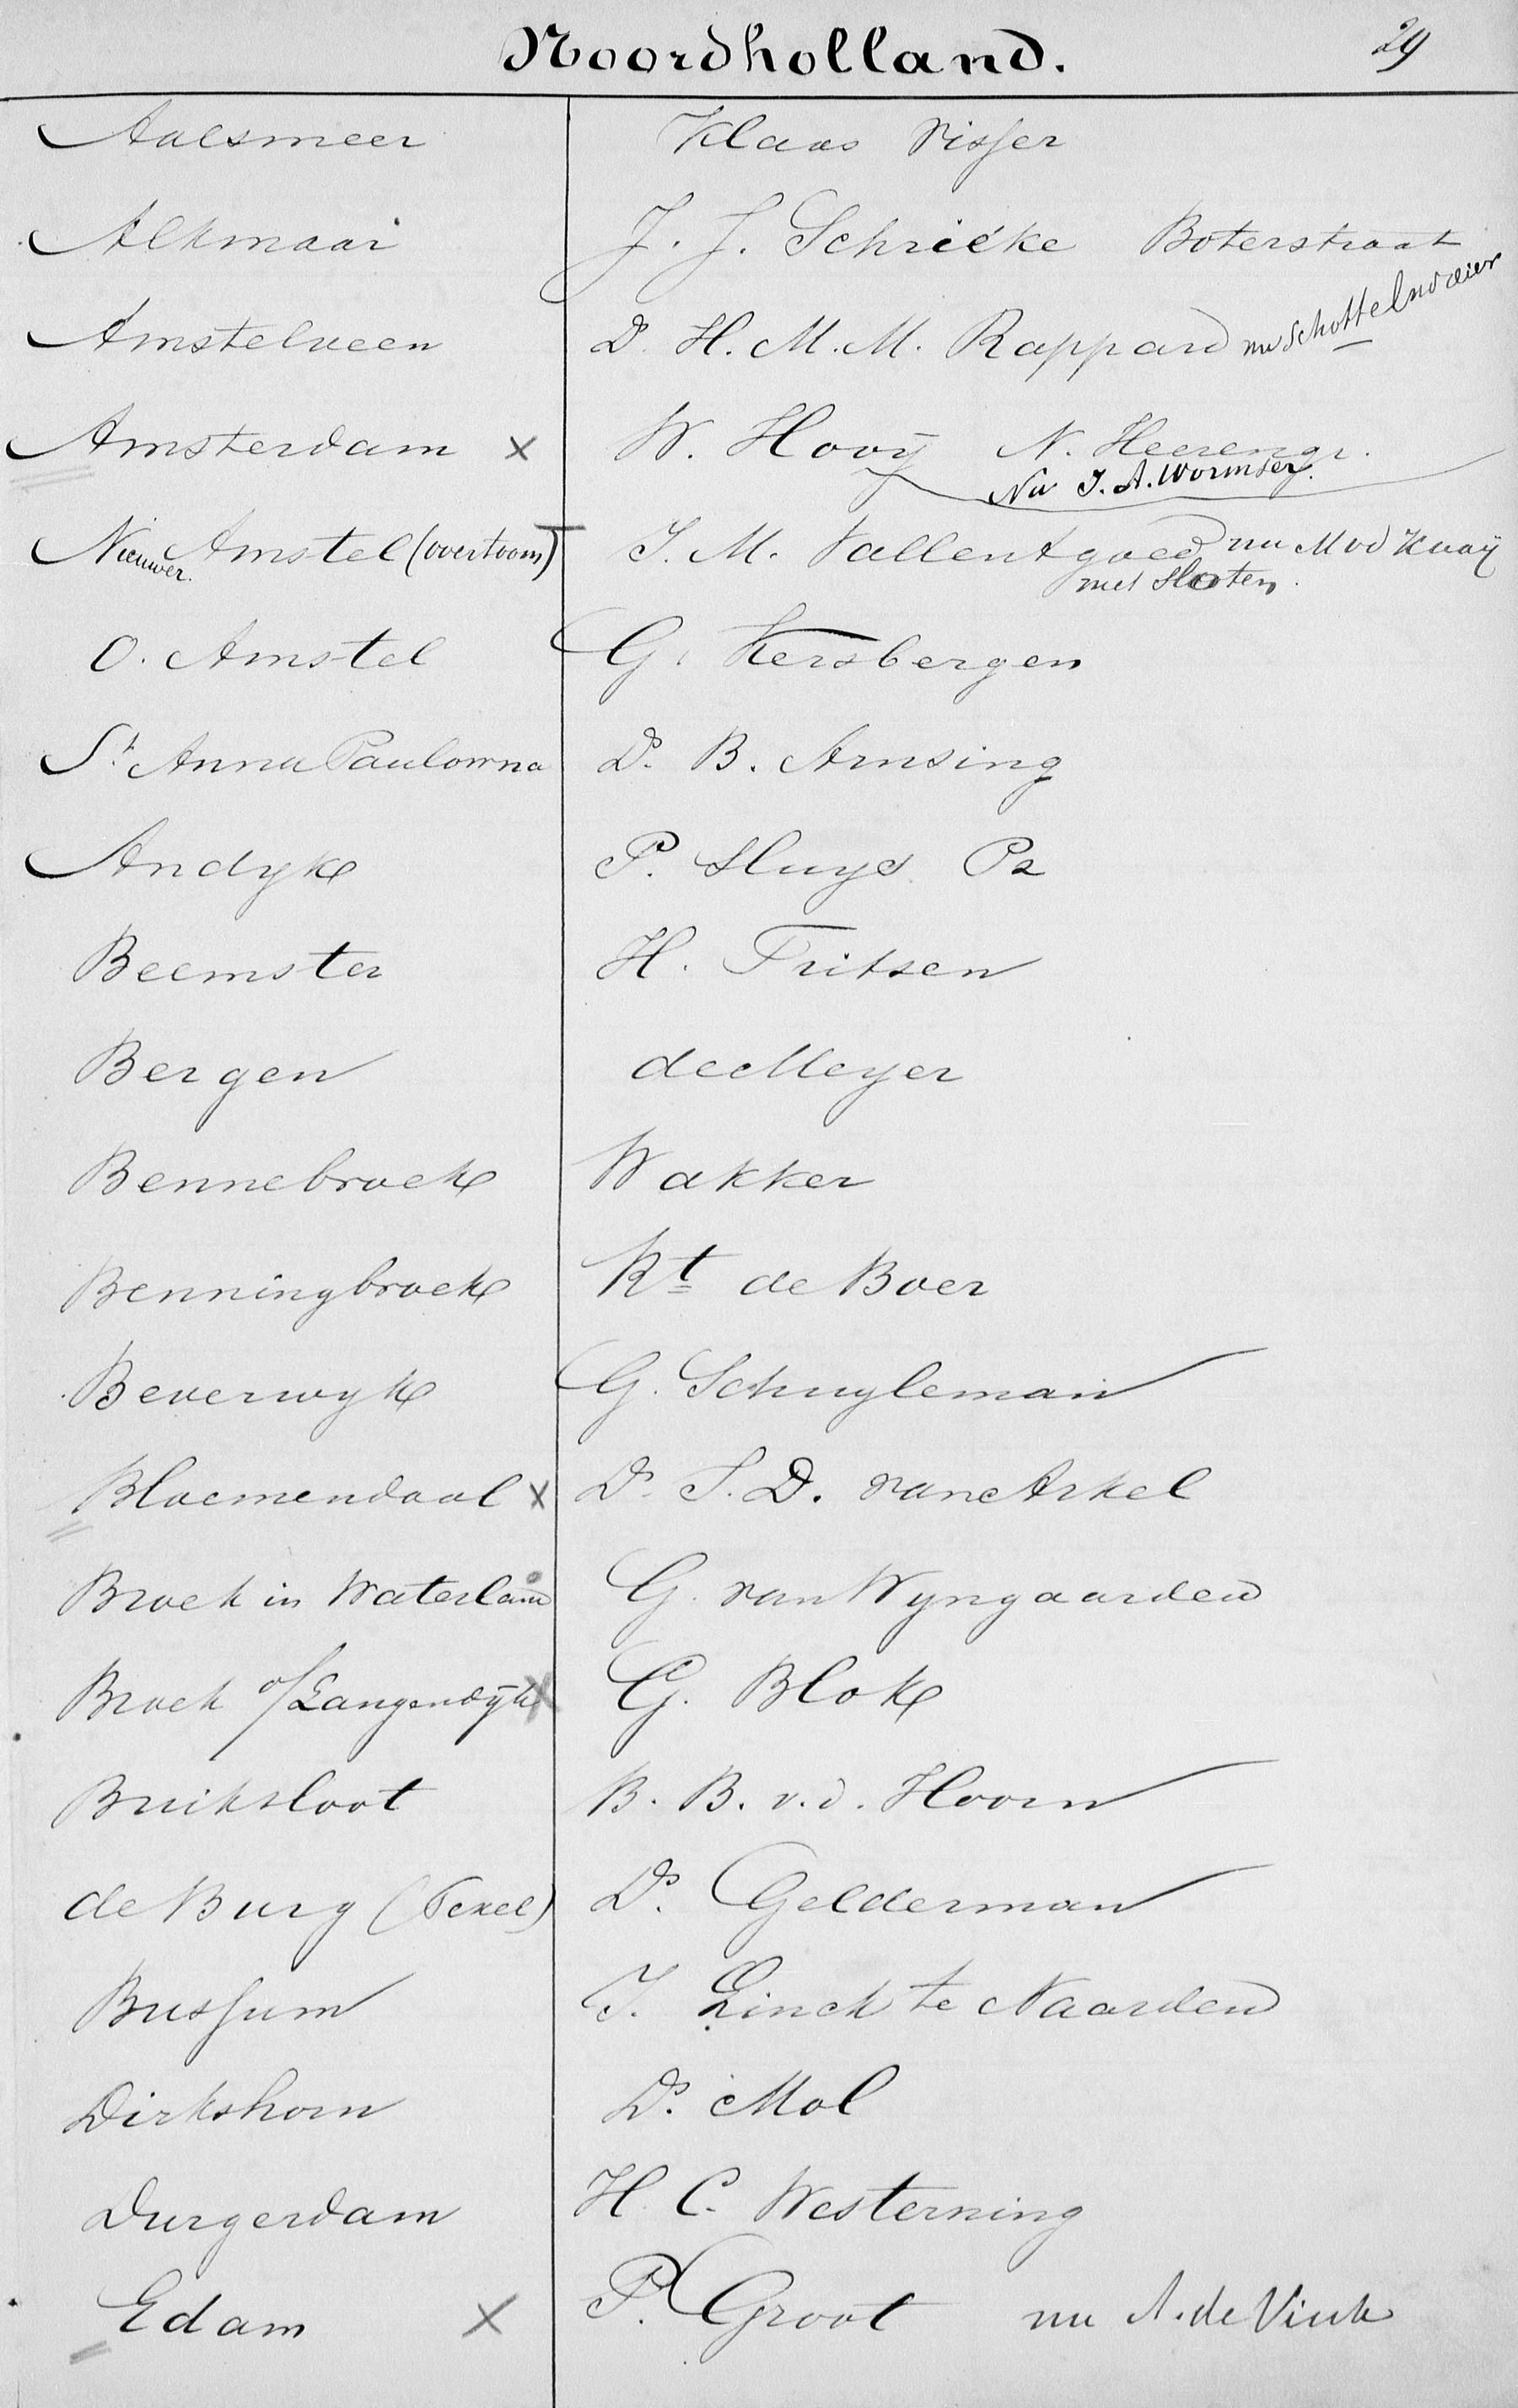 Noordholland. 29
Aalsmeer Klaas Visser
Alkmaar J. J. Schrieke Boterstraat
Amstelveen Ds. H. M. M. Rappard nu Schottelndreier
Amsterdam x W. Hooÿ N. Heerengr.
Nu J. A. Wormser.
Nieuwer Amstel (overtoom) J. M. Vallentgoed nu M vd Kuaÿ
met Sloten.
O. Amstel G. Kersbergen
St. Anna Paulowna Ds. B. Arnsing
Andyk P. Sluys Pz
Beemster H. Fritsen
Bergen de Meyer
Bennebroek Wakker
Benningbroek Kt de Boer
Beverwyk G. Schuyleman
Bloemendaal x Ds. J. D. van Arkel
Broek in Waterland G. van Wyngaarden
Broek o/Langendÿk x G. Blok
Buiksloot B. B. v. d. Hoorn
de Burg (Texel) Ds. Gelderman
Bussum J. Linck te Naarden
Dirkshorn Ds. Mol
Durgerdam H. C. Westerning
Edam x P. Groot nu A. de Vink